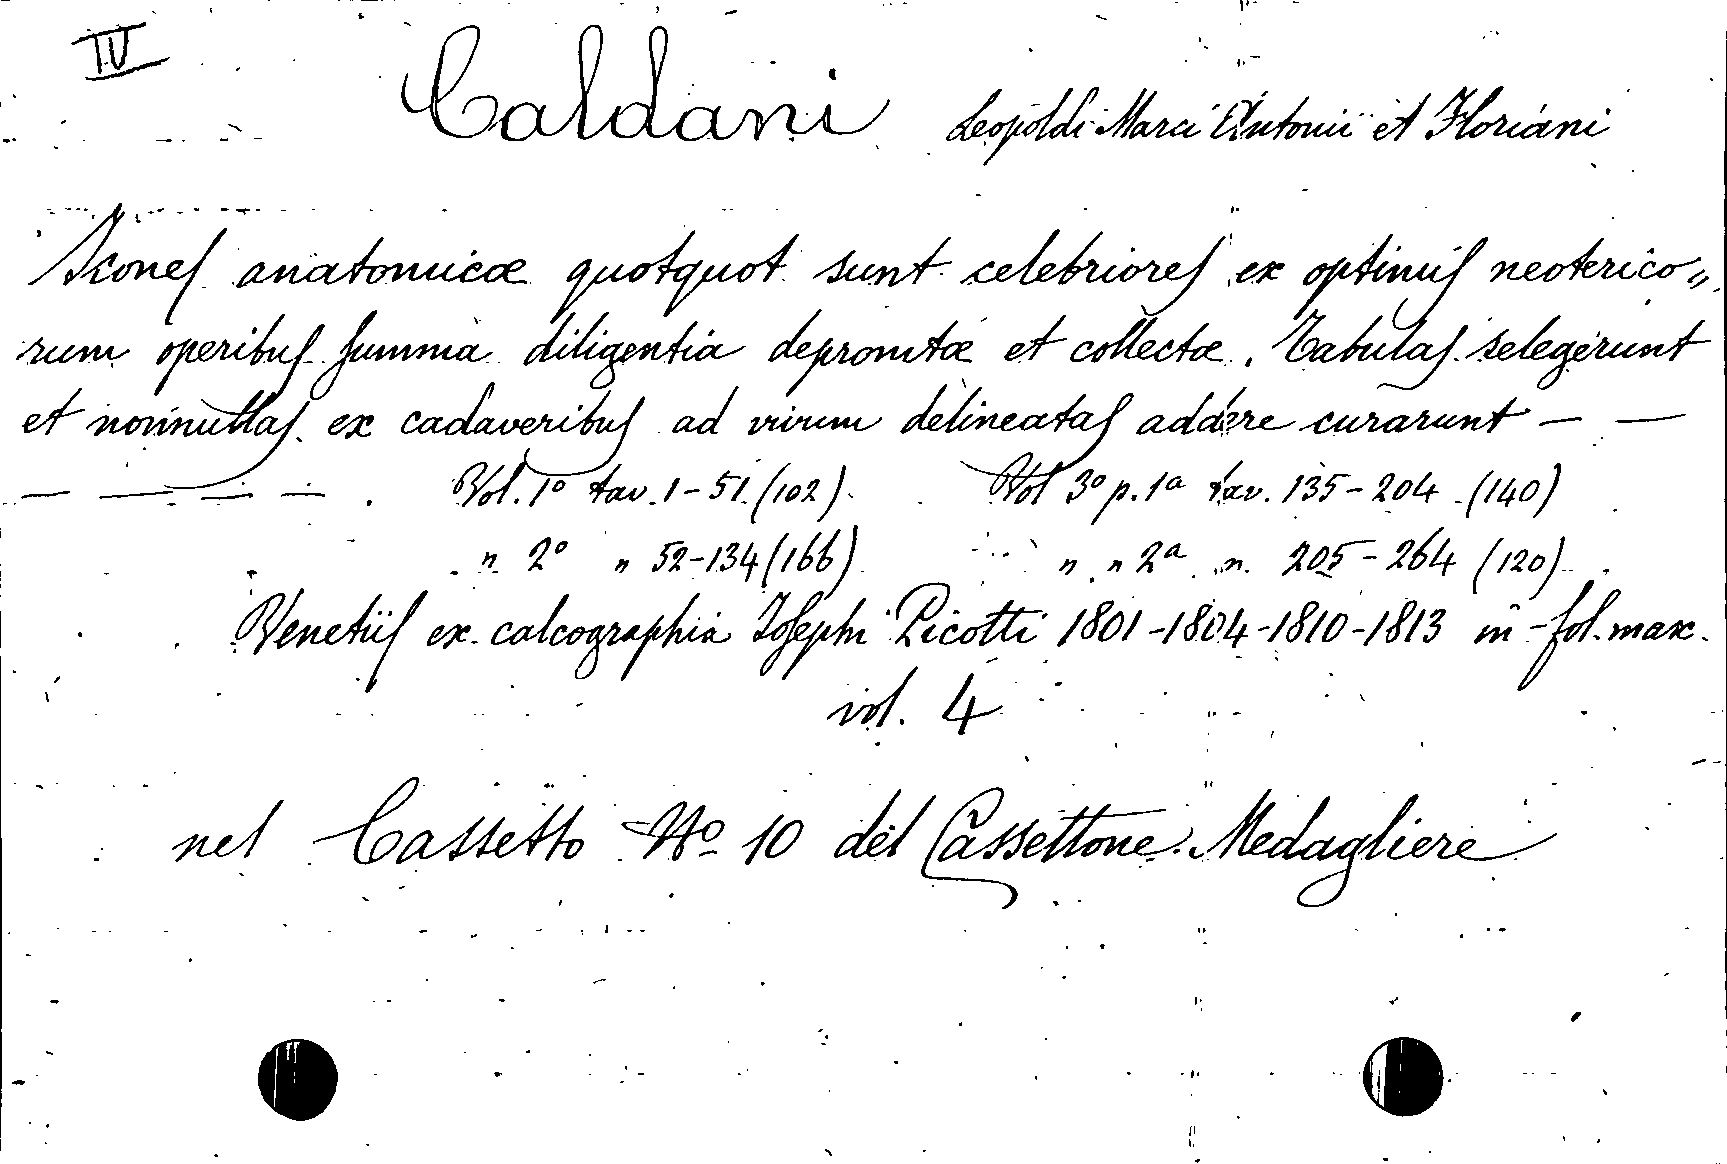 IV
Caldani Leopoldi Marci Antonii et Floriani
Icones anatomicæ quotquot sunt celebriores ex optimis neoterico„
rum operibus summa diligentia depromtæ et collectæ. Tabulas selegerunt
et nonnullas ex cadaveribus ad vivum delineatas addere curarunt — —
— — — — . Vol. 1º tav. 1-51. (102) Vol 3º p. 1ª tav. 135-204 (140)
" 2º " 52-134 (166) " " 2ª " 205-264 (120)
Venetiis ex calcographia Josephi Picotti 1801-1804-1810-1813 in-fol. max.
vol. 4
nel Cassetto Nº 10 del Cassettone Medagliere